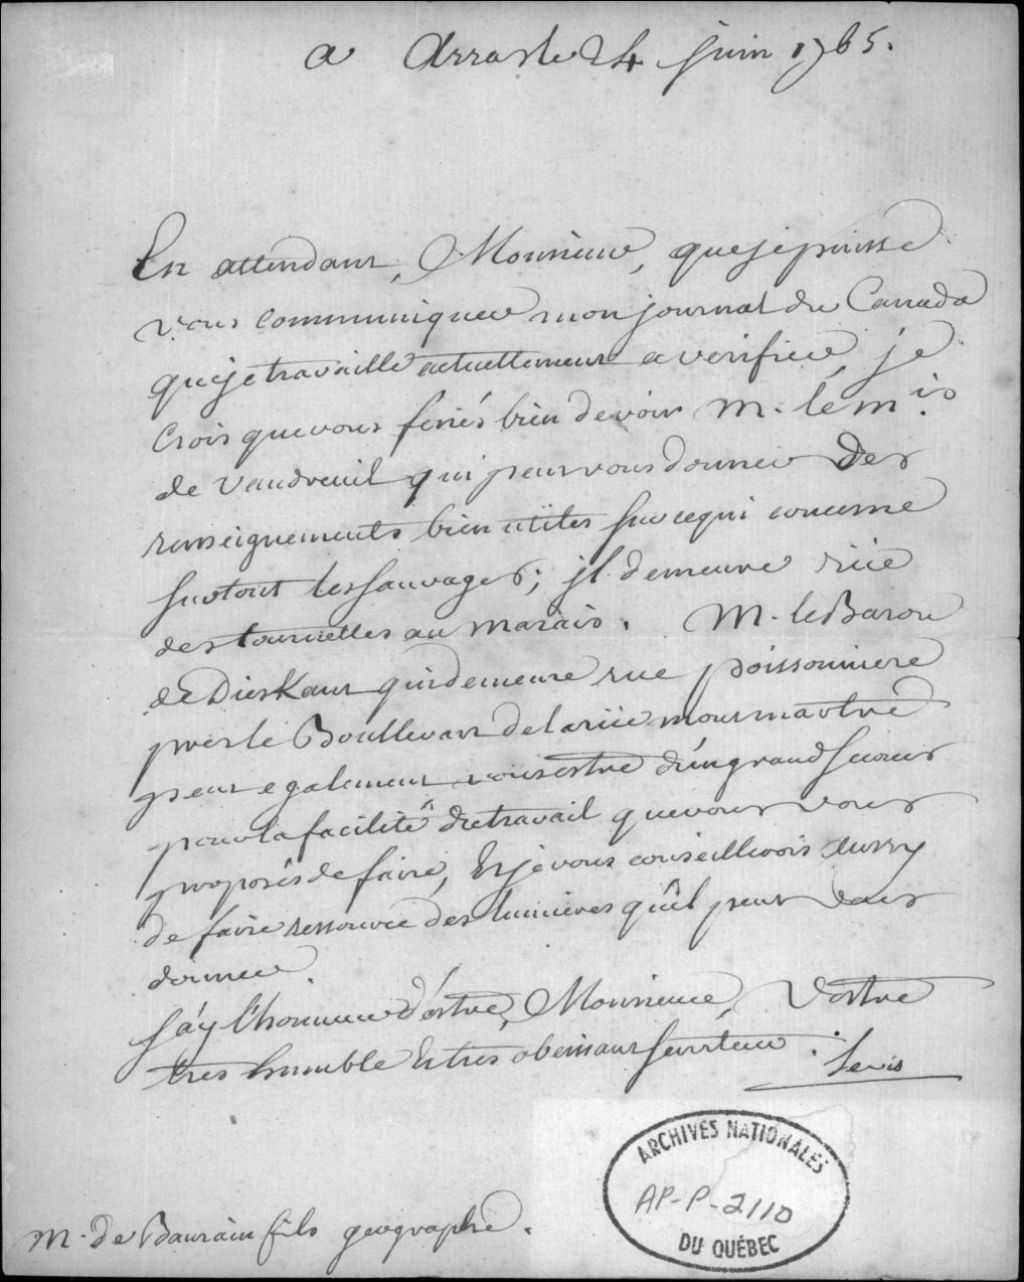 a Arras le 24 juin 1765.
En attendant, Monsieur, que je puisse
vous communiquer mon journal du Canada
que je travaille actuellement a verifier, je
crois que vous feriés bien de voir M. le M.is
de Vaudreuil qui peut vous donner des
renseignements bien utiles sur ce qui concerne
surtout les sauvages; jl demeure rüe
des tournelles au marais. M. le Baron
de Dieskaut qui demeure rue poissonniere
près le Boullevart de la rüe montmartre
peut egalement vous estre d'un grand secours
pour la facilité du travail que vous vous
proposés de faire, Et je vous conseillerois aussy
de faire ressource des lumieres qu'il peut vous
donner.
J'ay l'honneur d'estre, Monsieur, Vostre
tres humble Et tres obeissant serviteur.
Levis
M. de Baurain fils geographe.
ARCHIVES NATIONALES
AP-P-2110
DU QUÉBEC